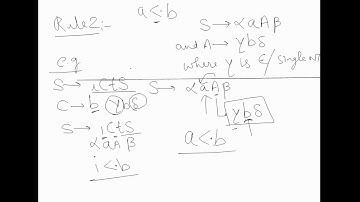 Rule 2:- a <· b S → αaAβ
and A → γbδ
where γ is ε/single NT
e.g
S → iCtS S → αaAβ
C → b γbδ
γbδ
S → iCtS
αaAβ a <· b
i <· b